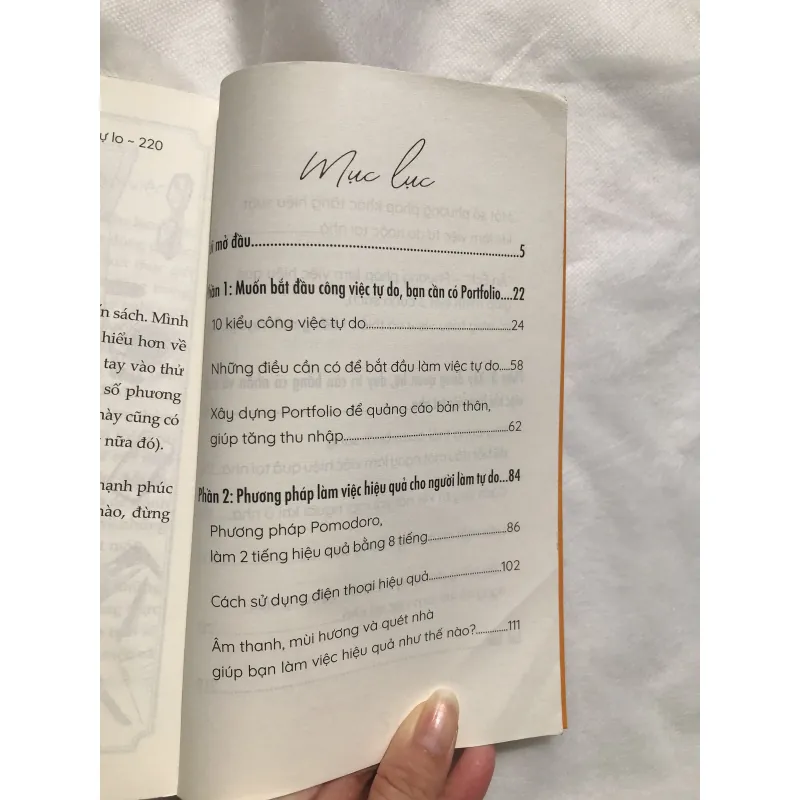 ự lo ~ 220
ốn sách. Mình
hiểu hơn về
tay vào thử
số phương
này cũng có
nữa đó).
hạnh phúc
nào, đừng
Mục lục
mở đầu....5
Phần 1: Muốn bắt đầu công việc tự do, bạn cần có Portfolio....22
10 kiểu công việc tự do....24
Những điều cần có để bắt đầu làm việc tự do....58
Xây dựng Portfolio để quảng cáo bản thân,
giúp tăng thu nhập....62
Phần 2: Phương pháp làm việc hiệu quả cho người làm tự do...84
Phương pháp Pomodoro,
làm 2 tiếng hiệu quả bằng 8 tiếng....86
Cách sử dụng điện thoại hiệu quả....102
Âm thanh, mùi hương và quét nhà
giúp bạn làm việc hiệu quả như thế nào?....111